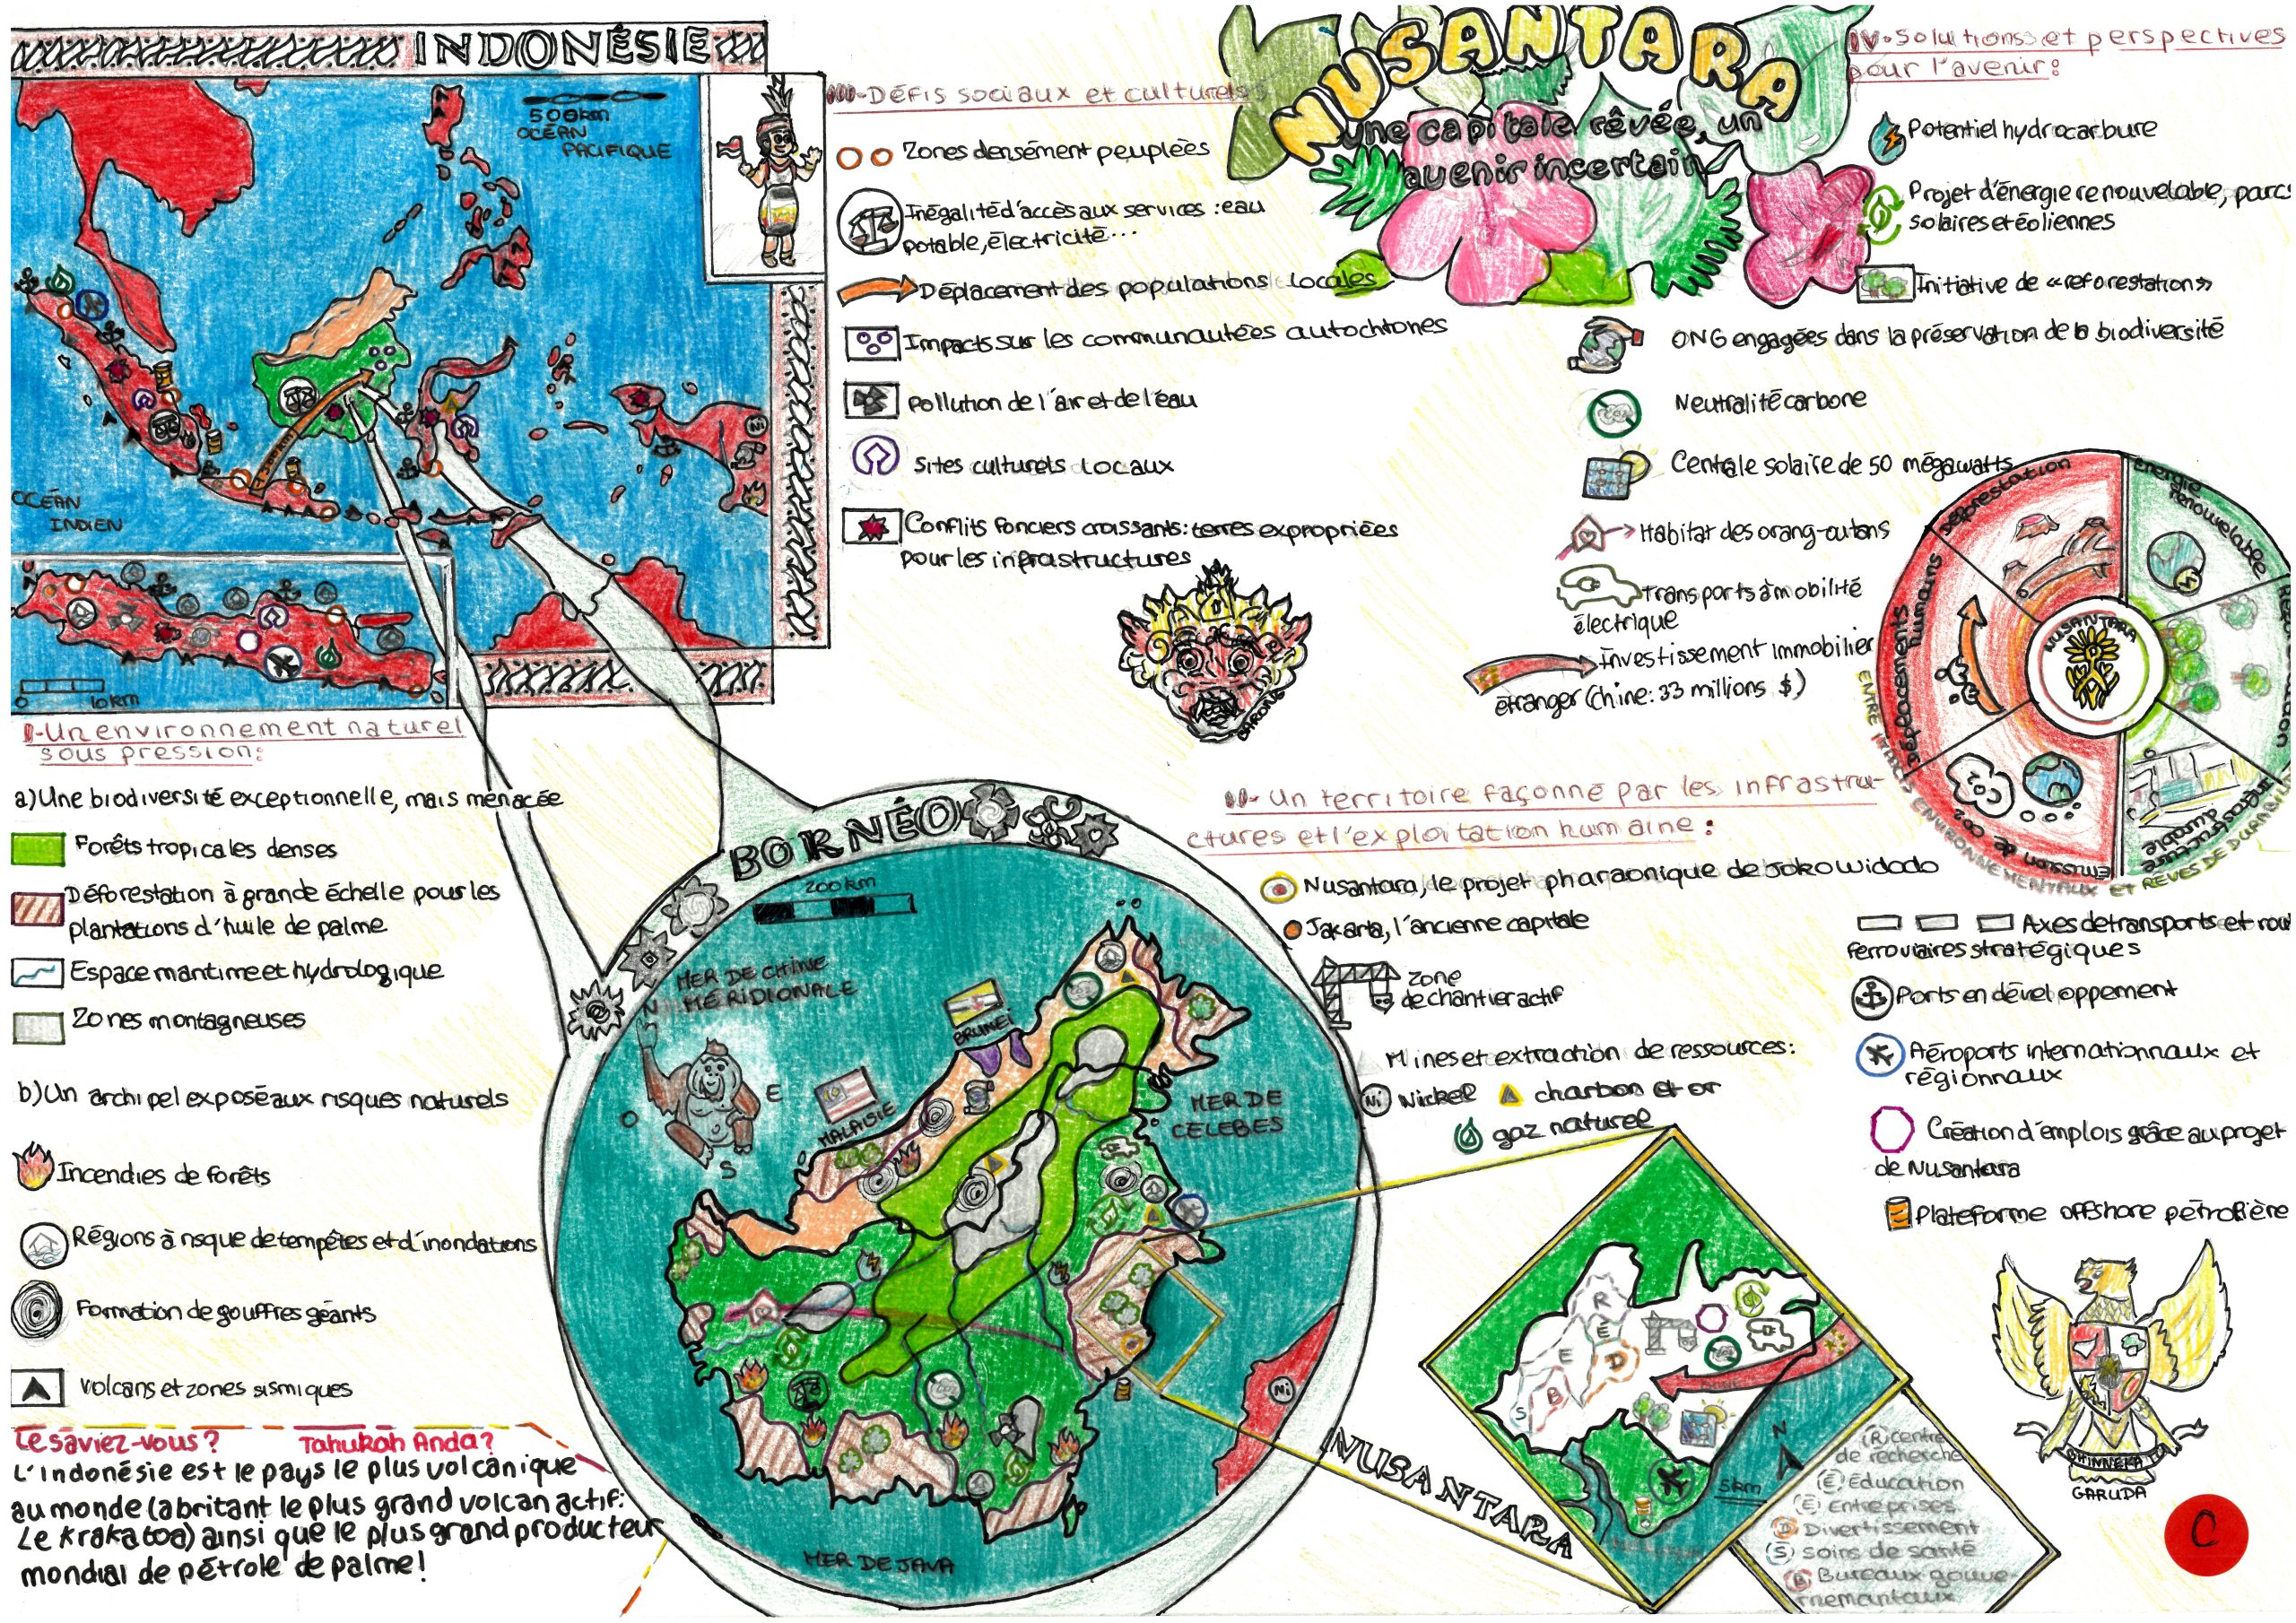 INDONÉSIE
500km
OCÉAN
PACIFIQUE
OCÉAN
INDIEN
Ni
0 10km
NUSANTARA
une capitale rêvée, un
avenir incertain
III-Défis sociaux et culturels
Zones densément peuplées
Inégalité d'accès aux services : eau
potable, électricité...
Déplacement des populations locales
Impacts sur les communautées autochtones
Pollution de l'air et de l'eau
Sites culturels locaux
Conflits fonciers croissants: terres expropriées
pour les infrastructures
BARONG
IV-Solutions et perspectives
pour l'avenir:
Potentiel hydrocarbure
Projet d'énergie renouvelable, parcs
solaires et éoliennes
Initiative de «reforestation»
ONG engagées dans la préservation de la biodiversité
Neutralité carbone
Centrale solaire de 50 mégawatts
Habitat des orang-outans
Transports à mobilité
électrique
Investissement immobilier
étranger (Chine: 33 millions $)
Déforestation
Energie
renouvelable
Déplacements
humains
NUSANTARA
Emission de CO2
infrastructure
durable
ENTRE IMPACTS ENVIRONNEMENTAUX ET RÊVES DE DURABILITÉ
I-Un environnement naturel
sous pression:
a) Une biodiversité exceptionnelle, mais menacée
Forêts tropicales denses
Déforestation à grande échelle pour les
plantations d'huile de palme
Espace maritime et hydrologique
Zones montagneuses
b) Un archipel exposé aux risques naturels
Incendies de forêts
Régions à risque de tempêtes et d'inondations
Formation de gouffres géants
Volcans et zones sismiques
Le saviez-vous? Tahukah Anda?
L'indonésie est le pays le plus volcanique
au monde (abritant le plus grand volcan actif:
Le Krakatoa) ainsi que le plus grand producteur
mondial de pétrole de palme!
BORNÉO
200 km
MER DE CHINE
MÉRIDIONALE
N
E
O
S
BRUNEI
MALAISIE
MER DE
CELEBES
Ni
MER DE JAVA
II- Un territoire façonné par les infrastru-
ctures et l'exploitation humaine :
Nusantara, le projet pharaonique de Joko Widodo
Jakarta, l'ancienne capitale
Zone
de chantier actif
Mines et extraction de ressources:
Ni Nickel charbon et or
gaz naturel
Axes de transports et rou
ferroviaires stratégiques
Ports en développement
Aéroports internationnaux et
régionnaux
Création d'emplois grâce au projet
de Nusantara
Plateforme offshore pétrolière
NUSANTARA
R
E
E
D
B
S
N
5km
(R) centre
de recherche
(E) Éducation
(E) Entreprises
(D) Divertissement
(S) Soins de santé
(B) Bureaux gouve-
rnemantaux
BHINNEKA T
GARUDA
C